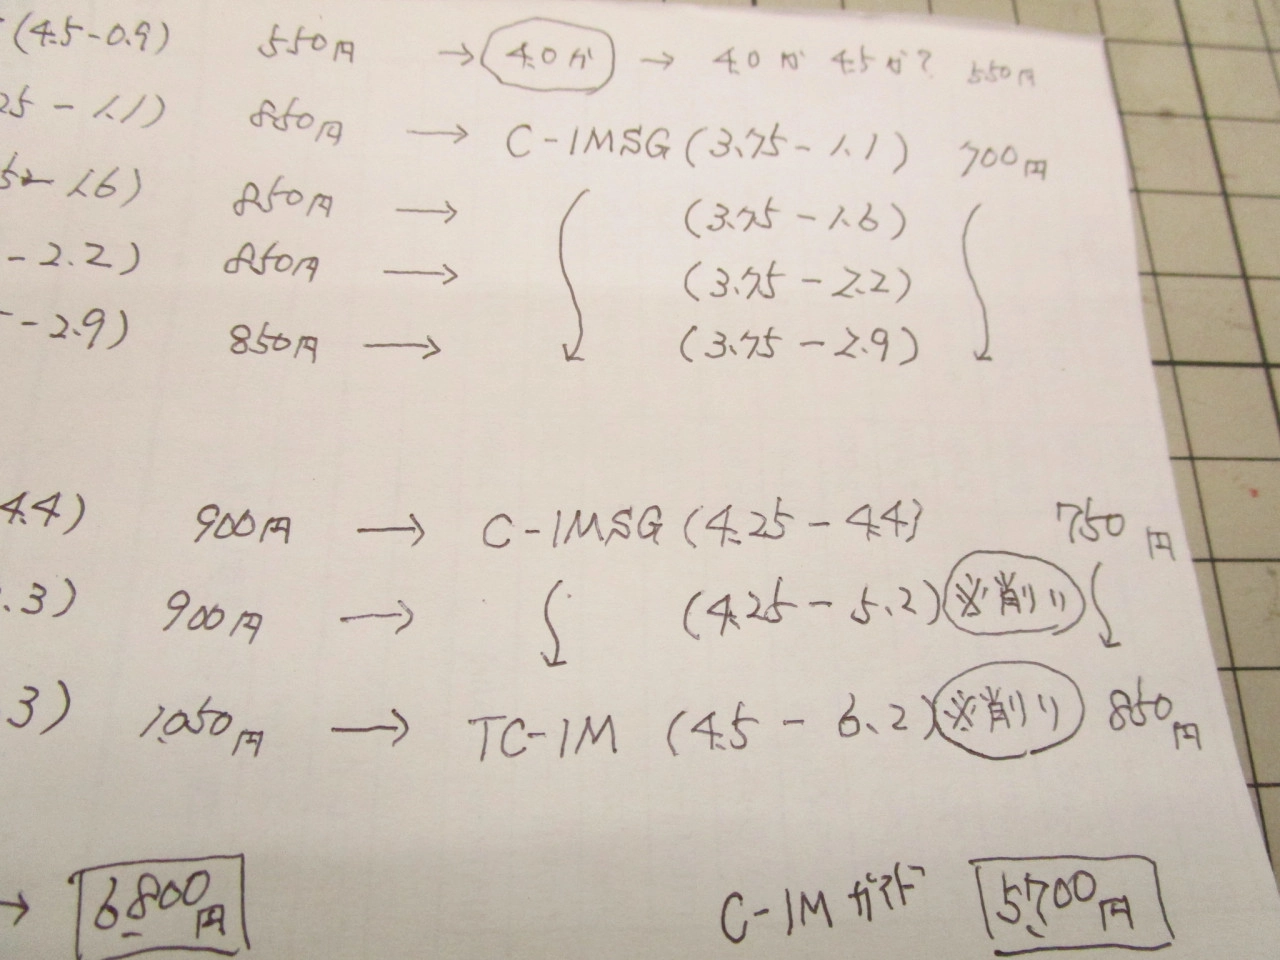 (4.5-0.9) 550円 → 4.0ガ → 4.0ガ 4.5ガ? 550円
25-1.1) 850円 → C-1MSG (3.75-1.1) 700円
-1.6) 850円 → (3.75-1.6)
-2.2) 850円 → (3.75-2.2)
-2.9) 850円 → (3.75-2.9)
4.4) 900円 → C-1MSG (4.25-4.4) 750円
.3) 900円 → (4.25-5.2) ※削り
3) 1,050円 → TC-1M (4.5-6.2) ※削り 850円
→ 6,800円 C-1M ガイド 5,700円